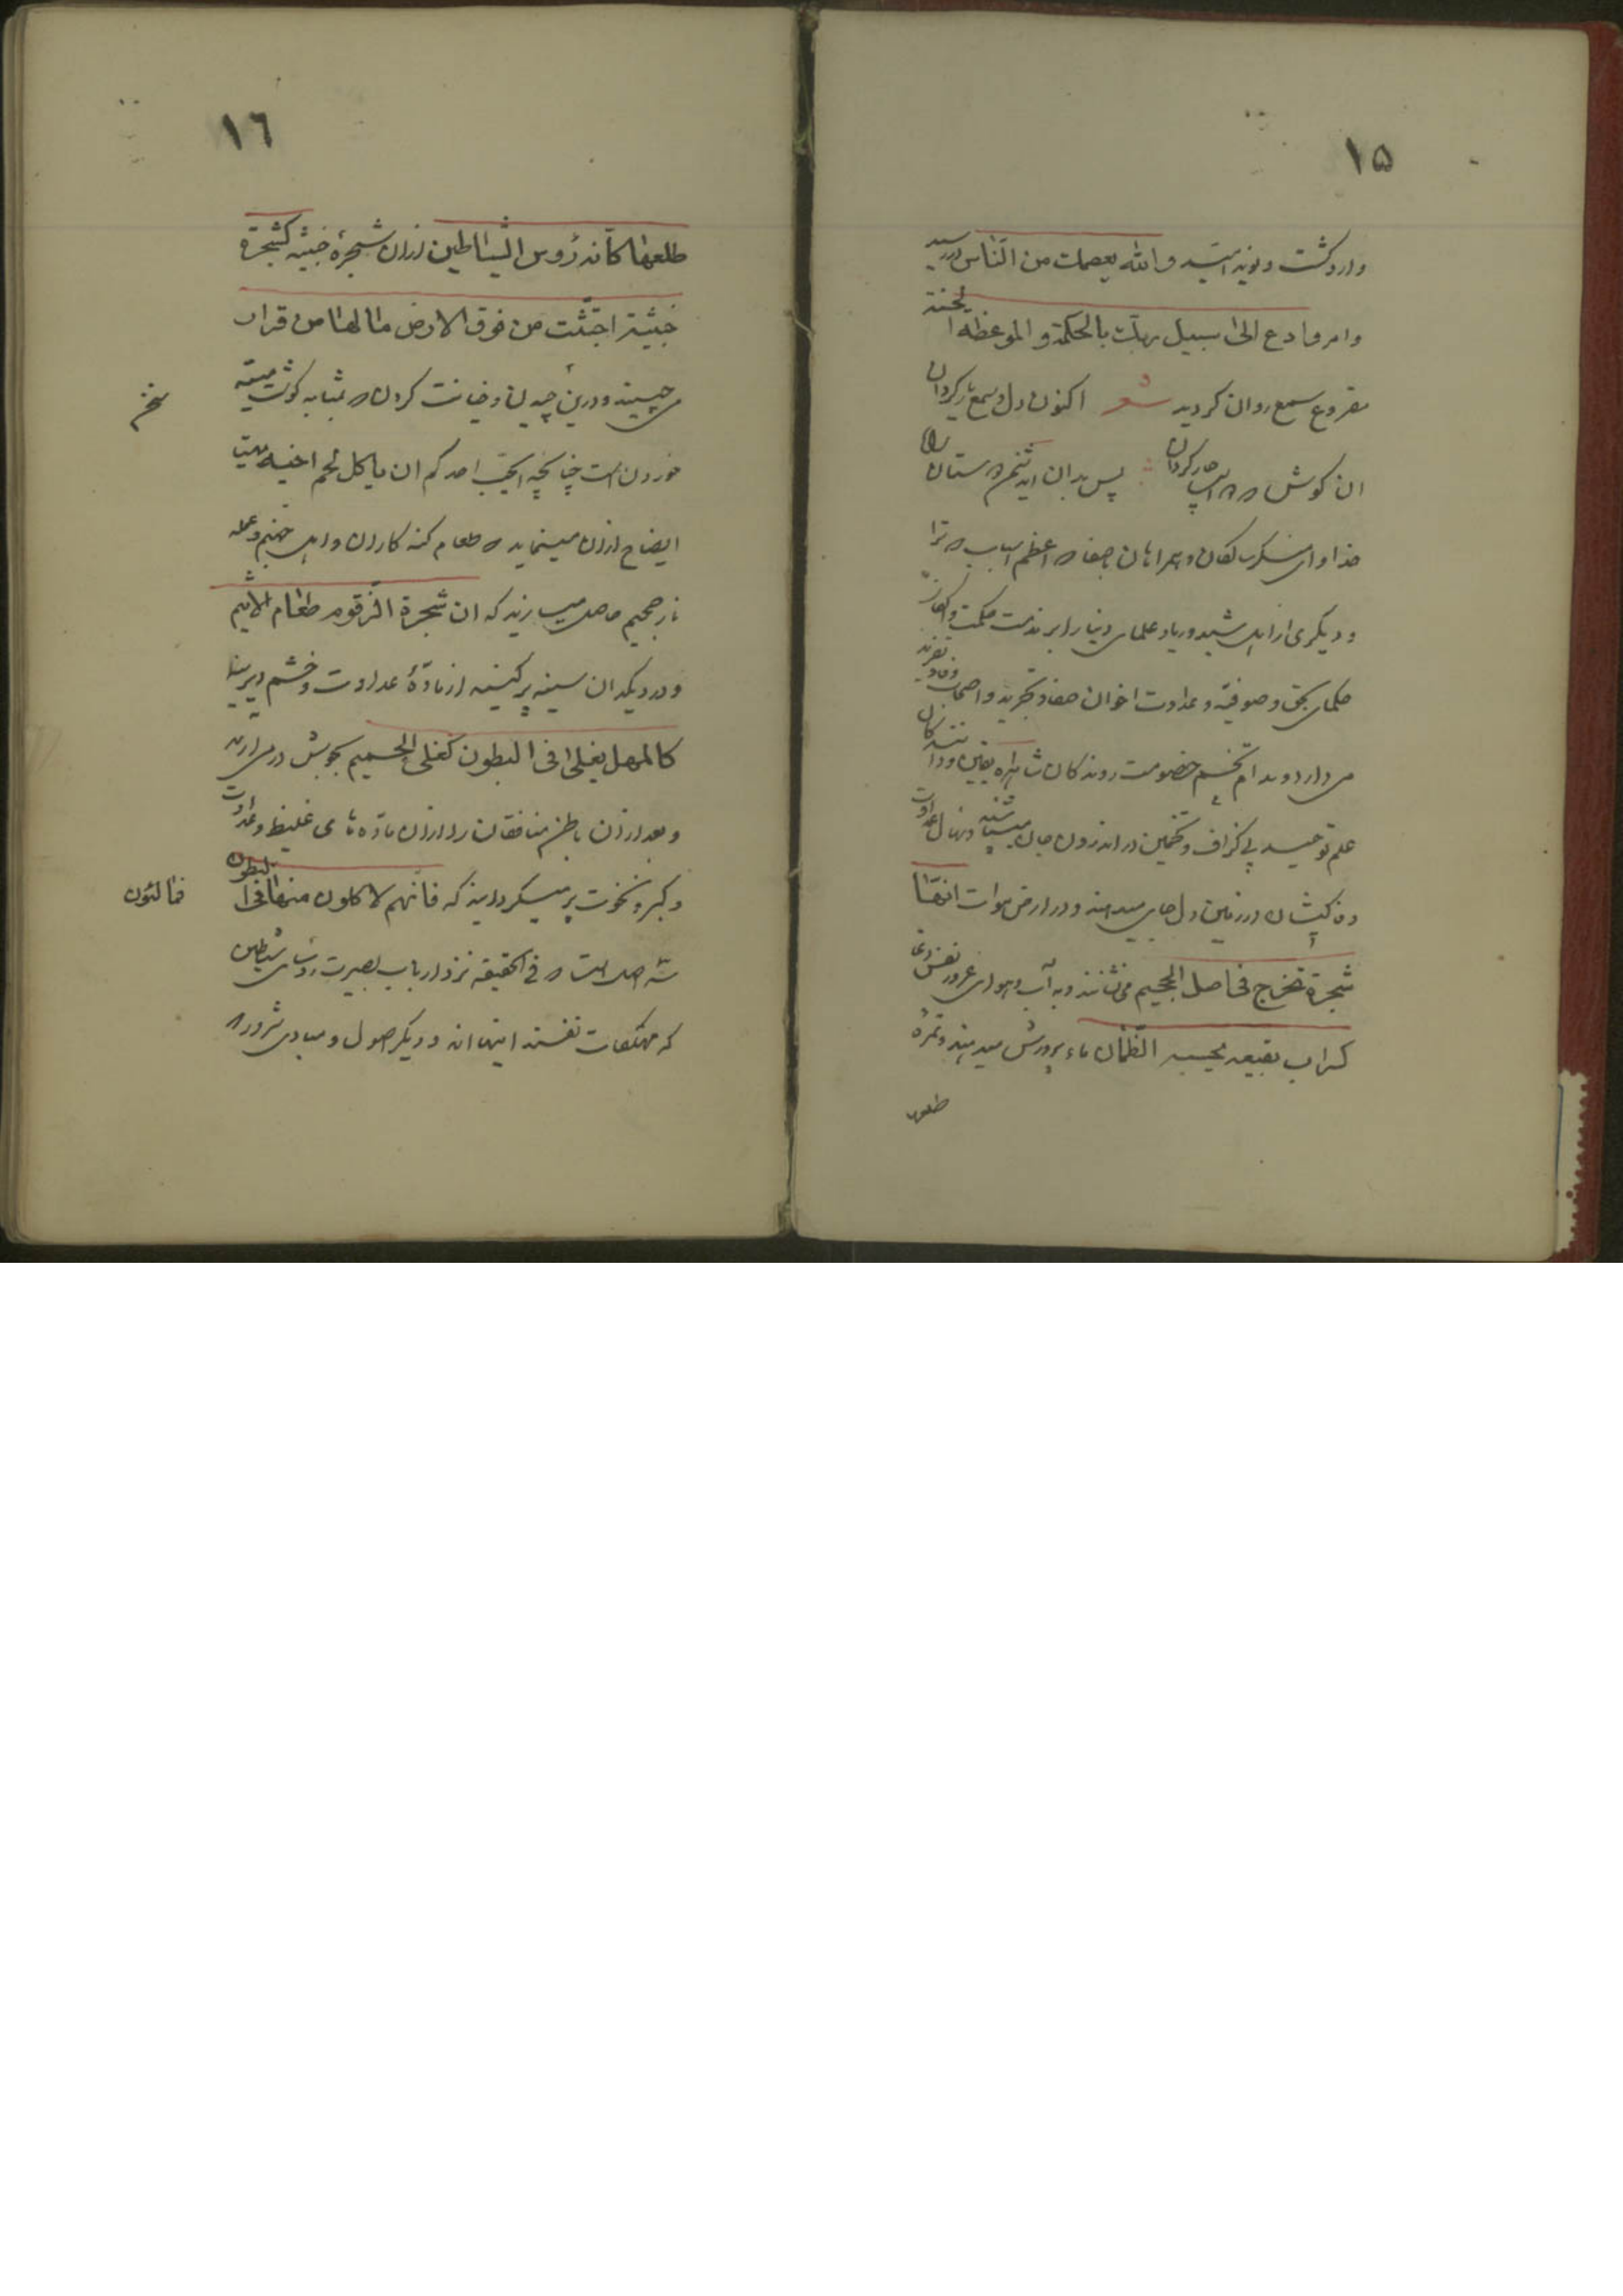 ١۵
وارد گشت و نوید امید والله یعصمك من الناس در رسید
وامر وادع الی سبیل ربك بالحکمة و الموعظة الحسنة
مقروع سمع روان گردید شعر اکنون دل و سمع یار گردان
ان گوش اسپ خار گردان پس بدان ای
خدا و ای منکر و همراهان صفا اعظم اسباب ترا
و دیگری از اهل شید و ریا و علمای دنیا را بر مذمت حکمت و انکار
حکمای بحق و صوفیه و عداوت اخوان صفا و تجرید و اصحاب وفا و تفرید
می دارد و مدام تخم خصومت روندگان شاهراه یقین و دانندگان
علم توحید بی گزاف و تخمین در اندرون جان میپاشند و نهال عداوت
در زمین دل جای میدهند و در ارض موات انها
شجرة تخرج فی اصل الجحیم می نشانند و به آب و هوای غرور نفس
کسراب بقیعه یحسبه الظمان ماء پرورش میدهند و ثمره
طلعها
١٦
طلعها کانه رؤس الشیاطین ازان شجرهٔ خبیثه کشجرة
خبیثة اجتثت من فوق الارض ما لها من قرار
می چینند و درین چیدن و خیانت کردن بمثابه گوشت میته
خوردن است چنانچه ایحب احدکم ان یاکل لحم اخیه میتا
ایضاح ازان مینماید طعام گنه کاران و اهل جهنم و عمله
نار جحیم حاصل میسازند که ان شجرة الزقوم طعام الاثیم
و در دیگدان سینه پر کینه از مادهٔ عداوت و خشم دیرینه
کالمهل یغلی فی البطون کغلی الحمیم بجوش در می آرند
و بعد ازان باطن منافقان را ازان ماده های غلیظ و عداوت
و کبر و نخوت پر میگردانند که فانهم لاکلون منها فی البطون
فمالئون
سه اصل است فی الحقیقه نزد ارباب بصیرت رؤسای شیاطین
که مهلکات نفسند اینها اند و دیگر اصول و مبادی شرور